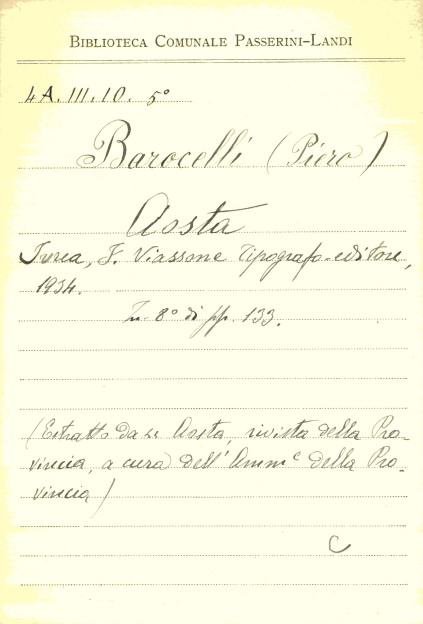 BIBLIOTECA COMUNALE PASSERINI-LANDI
4A.III.10. 5º
Barocelli (Piero)
Aosta
Ivrea, F. Viassone Tipografo-editore,
1934.
In-8º di pp. 133.
(Estratto da: Aosta, rivista della Pro-
vincia, a cura dell'Amm.e della Pro-
vincia)
C